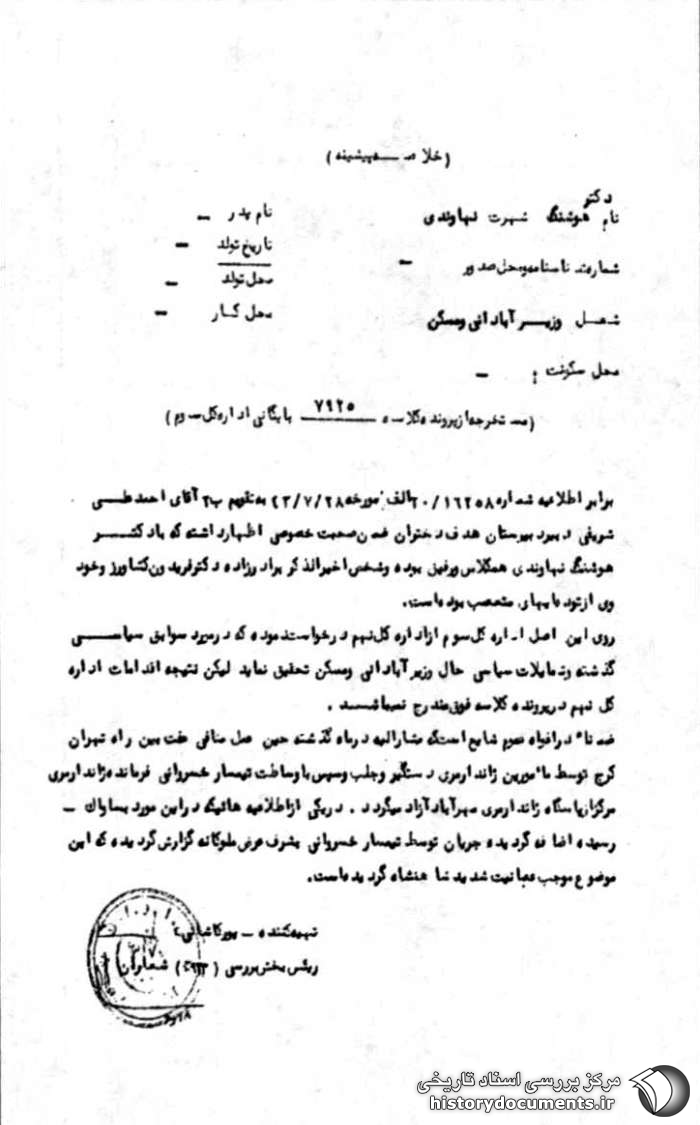 (خلاصه پیشینه)
دکتر
نام هوشنگ شهرت نهاوندی نام پدر –
تاریخ تولد –
شماره شناسنامه و محل صدور – محل تولد –
شغل وزیر آبادانی و مسکن محل کار –
محل سکونت : –
(مستخرجه از پرونده کلاسه ۷۹۲۵ بایگانی اداره کل سوم)
برابر اطلاعیه شماره ۲۰/۱۶۲۵۸ الف مورخه ۴۳/۷/۲۸ به تقویم ب۲ آقای احمد علی
شریفی دبیر دبیرستان هدف دختران ضمن صحبت خصوصی اظهار داشته که با دکتر
هوشنگ نهاوندی همکلاس و رفیق بوده و شخص اخیرالذکر برادرزاده دکتر فریدون کشاورز و خود
وی از توده‌ایهای متعصب بوده است.
روی این اصل اداره کل سوم از اداره کل نهم درخواست نموده که در مورد سوابق سیاسی
گذشته و تمایلات سیاسی حال وزیر آبادانی و مسکن تحقیق نماید لیکن نتیجه اقدامات اداره
کل نهم در پرونده کلاسه فوق مندرج نمیباشد.
ضمناً در افواه عموم شایع است که مشارالیه در ماه گذشته حین عمل منافی عفت بین راه تهران
کرج توسط مأمورین ژاندارمری دستگیر و جلب و سپس با وساطت تیمسار خسروانی فرمانده ژاندارمری
مرکز از پاسگاه ژاندارمری مهرآباد آزاد میگردد. در یکی از اطلاعیه هائیکه در این مورد بساواک –
رسیده اضافه گردیده جریان توسط تیمسار خسروانی بشرف عرض ملوکانه گزارش گردیده که این
موضوع موجب عصبانیت شدید شاهنشاه گردیده است.
تهیه کننده – پورکاشانی
رئیس بخش بررسی ( ) شعاران
مرکز بررسی اسناد تاریخی
historydocuments.ir